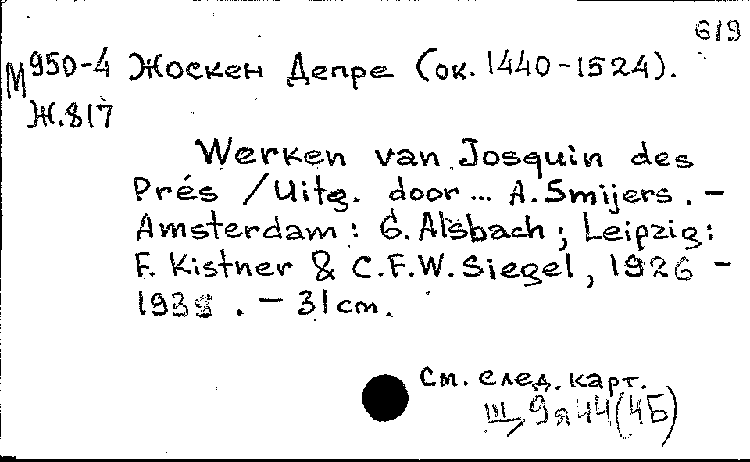 б/9
М 950-4 Жоскен Депре (ок. 1440-1524).
Ж.817
Werken van Josquin des
Prés / Uitg. door... A. Smijers. –
Amsterdam : G. Alsbach ; Leipzig :
F. Kistner & C.F.W. Siegel, 1926 –
1938 . – 31 cm.
См. след. карт.
Щ 9я44(4Б)